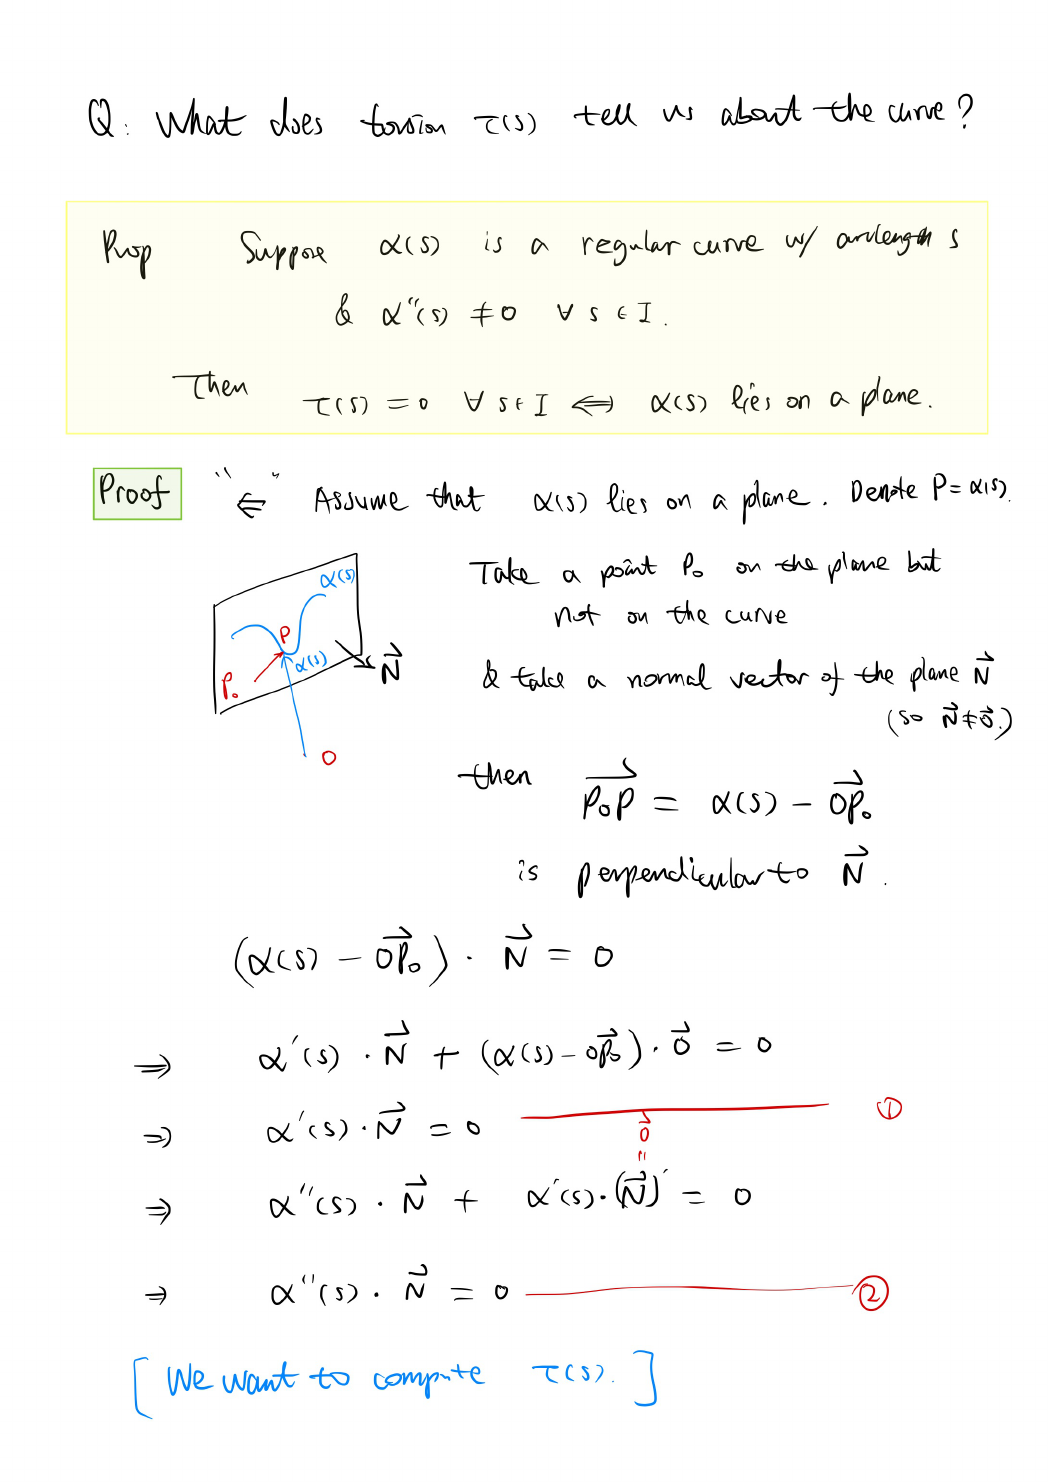 Q: What does torsion τ(s) tell us about the curve?
Prop Suppose α(s) is a regular curve w/ arclength s
& α''(s) ≠ 0 ∀ s ∈ I.
Then τ(s) = 0 ∀ s ∈ I ⟺ α(s) lies on a plane.
Proof "⇐" Assume that α(s) lies on a plane. Denote P = α(s).
Take a point P₀ on the plane but
not on the curve
& take a normal vector of the plane N⃗
(so N⃗ ≠ 0⃗.)
α(s)
P
α(s)
P₀
N⃗
O
then P₀P⃗ = α(s) − OP₀⃗
is perpendicular to N⃗.
(α(s) − OP₀⃗) · N⃗ = 0
⇒ α'(s) · N⃗ + (α(s) − OP₀⃗) · 0⃗ = 0
⇒ α'(s) · N⃗ = 0 ①
0⃗
"
⇒ α''(s) · N⃗ + α'(s) · (N⃗)' = 0
⇒ α''(s) · N⃗ = 0 ②
[We want to compute τ(s).]